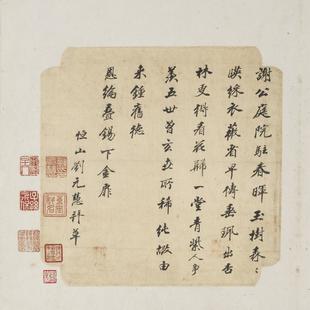 謝公庭院駐春暉玉樹春〻
暎綵衣薇省早傳垂珮出杏
林更擬看花歸一堂青紫人爭
羨五世曾玄世所稀純嘏由
來鍾舊德
恩綸疊錫下金扉
恒山劉元慧拜草